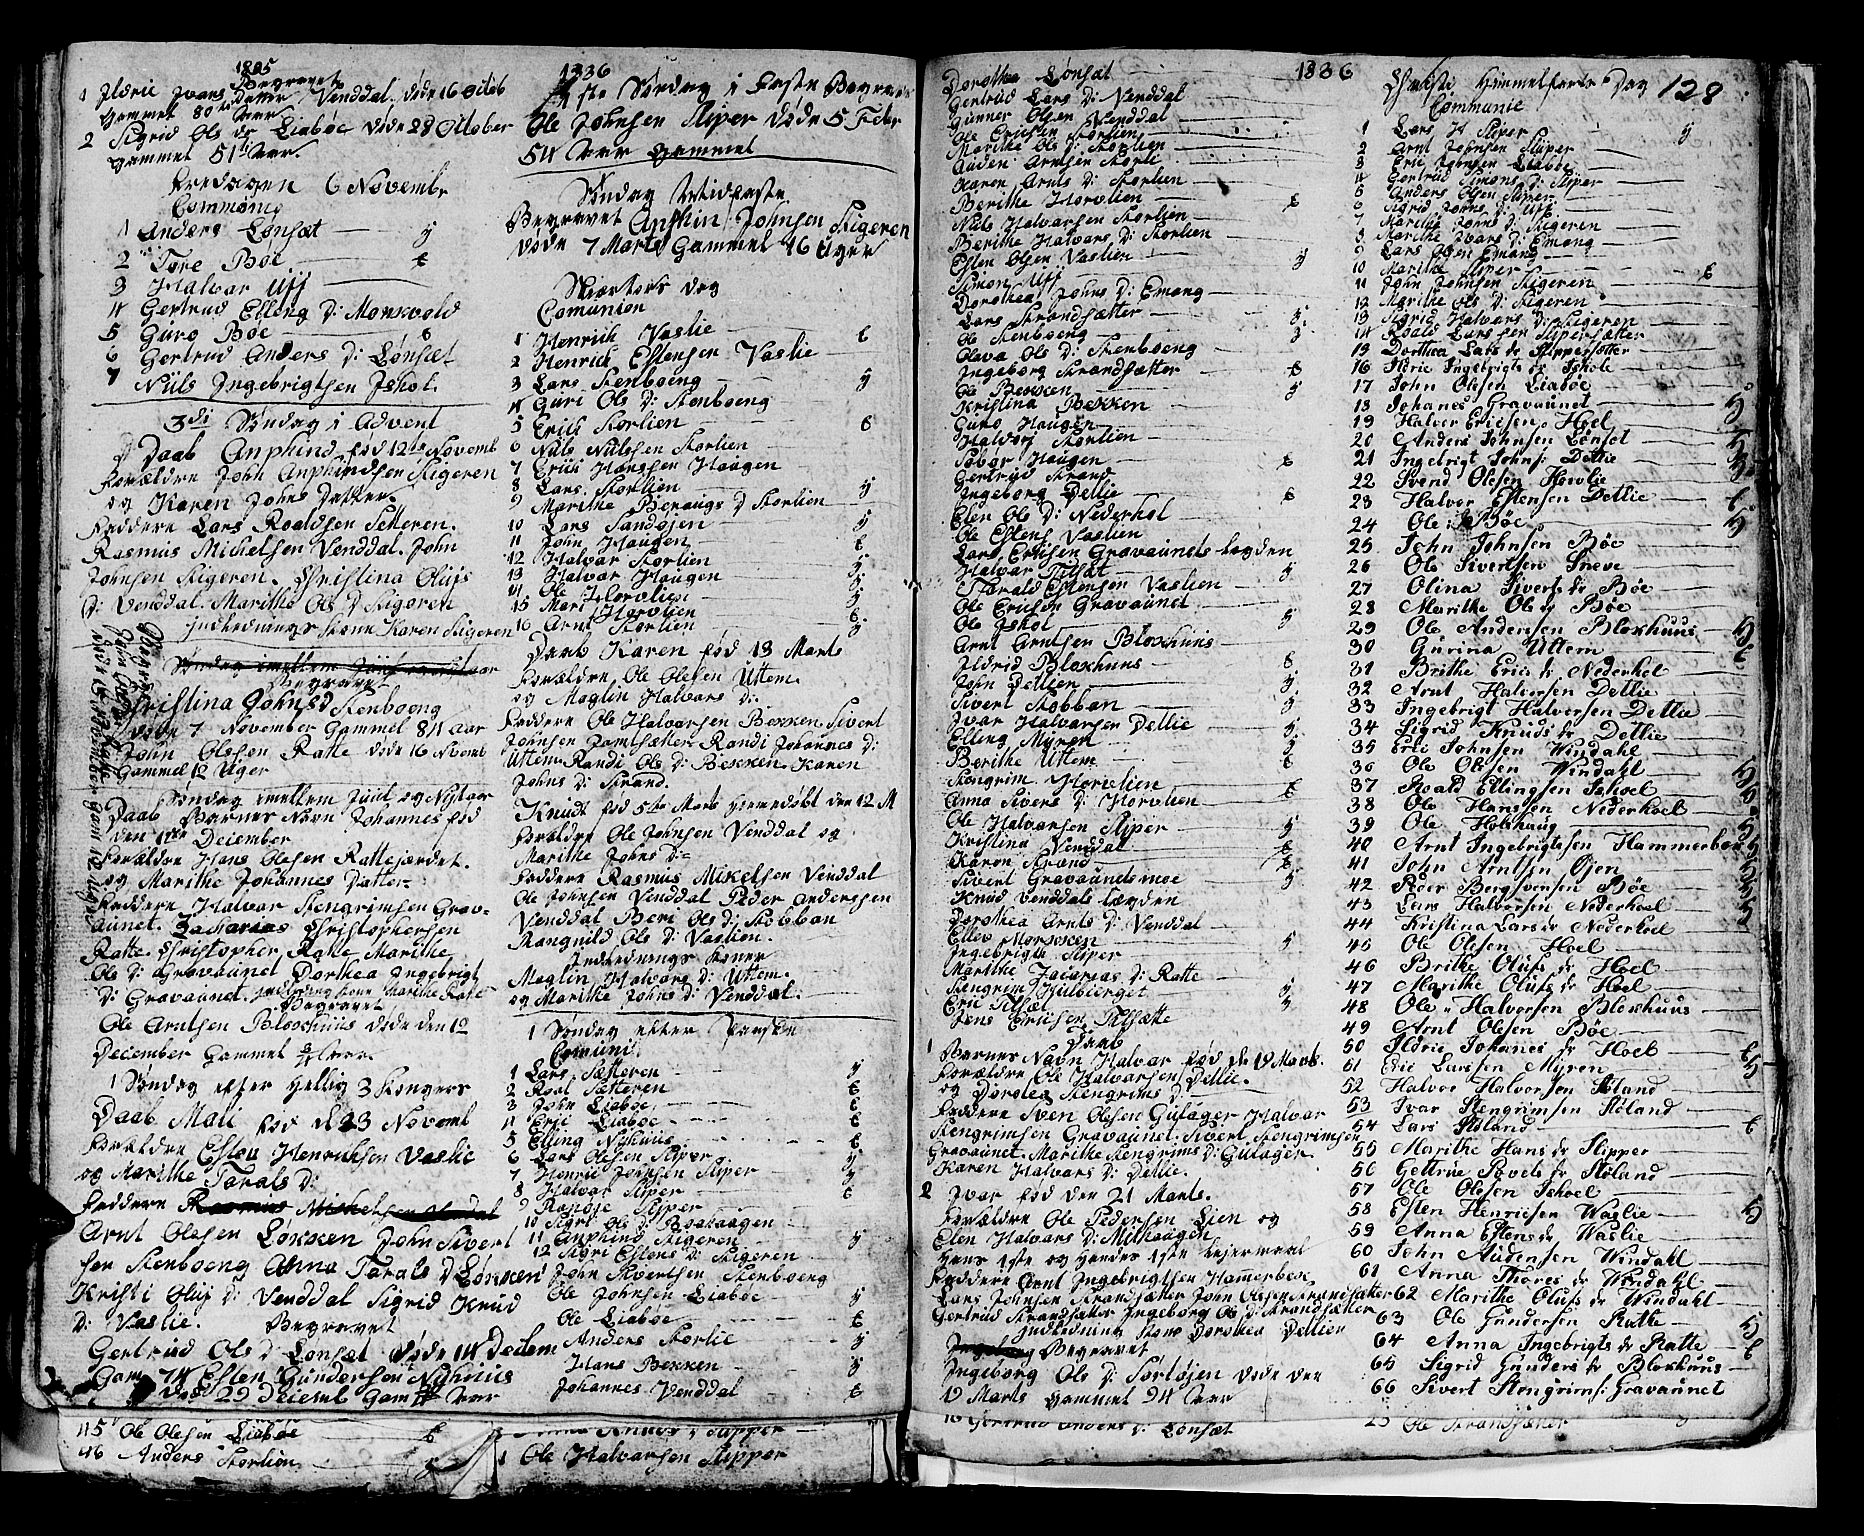 1835
Begravet
1 Ildrie Ivars Datter Venddal, døde 16 Octob
Gammel 80 Aar
2 Sigrid Ols dr Liabøe døde 28 October
gammel 51 Aar.
Fredagen 6 Novembr
1 Anders Lønsæt — y
2 Tore Bøe — E
3 Halvar Uff
4 Gertrud Elleng D: Monsvold
5 Guro Bøe — E
6 Gertrud Anders D: Lønsæt
7 Niils Ingebrigtsen Ishol.
3di Søndag i Advent
Daab Anphind fød 12te Novemb
Forældre John Anphindsen Stigeren
og Karen Johns Datter.
Faddere Lars Roaldsen Setteren.
Rasmus Michelsen Venddal. John
Johnsen Stigeren. Christina Olufs
D: Venddal. Marithe Ols D Stigeren
Indledningskone Karen Stigeren
Begravet
Christina Johns D Stenboeng
døde 7 November Gammel 84 Aar
John Olesen Ratte døde 16 Novemb
Gammel 12 Uger
Søndag imellem Juul og Nytaar
Daab Barnes Navn Johannes fød
den 1ste December
Forældre Hans Olesen Rattefærdet.
og Marithe Johannes Datter
Faddere Halvar Stengrimsen Grav-
aunet. Zacharias Christophersen
Ratte. Christopher Ratte Marithe
Ols D: Gravaunet Dorthea Ingebrigt
D: Gravaunet. Indlednings kone Marithe Ratte
Begravet
Ole Arntsen Bloxhuus døde den 10
December Gammel Aar
1 Søndag efter Hellig 3 Kongers
Daab Mali fød d. 23 Novemb
Forældre Esten Henriksen Vaslie
og Marithe Tarals D:
Faddere Rasmus Mickelsen Vendal
Arnt Olesen Løkken John Sivert
sen Stenboeng Anna Tarals D Lønken
Kristi Oluf D: Venddal Sigrid Knud
D: Vaslie. Begravet
Gertrud Ols D Lønsæt døde 14 Decem
Gam 74 Esten Gundersen Nyhuus
død 29 Decemb Gam Aar
45 Ole Olesen Liabøe — E
46 Anders Storlien — y
1836
1ste Søndag i Faste Begravet
Ole Johnsen Sliper døde 5 Febr
54 Aar gammel
Søndag Midfaste
Begravet Anphin Johnsen Stigeren
døde 7 Marts Gammel 16 Uger
Skiertors dag
Comunion
1 Henrich Vaslie — E
2 Henrich Estensen Vaslie
3 Lars Stenboeng — y
4 Guri Ols D: Stenboeng
5 Erick Storlien — E
6 Nils Nilssen Storlien
7 Erick Hanssen Haugen
8 Lars Storlien — y
9 Marithe Beraugs D Storlien
10 Lars Sandøjen — y
11 John Haugen — E
12 Halvar Storlien — y
13 Halvar Haugen — y
14 Ole Horvlien — y
15 Mari Horvlien — E
16 Arnt Storlien — y
Daab Karen fød 13 Marts
Forældre Ole Olesen Uttem
og Maglin Halvars D:
Faddere Ole Halvarsen Bekken. Sivert
Johnsen Jamtsætter. Randi Johannes D:
Uttem. Randi Ols D: Bekken. Karen
Johns D: Strand.
Knudt fød 5te Marts Hiemedøbt den 12 M
Forældre Ole Johnsen Venddal og
Marithe Johns D:
Faddere Rasmus Mikelsen Venddal
Ole Johnsen Venddal Peder Andersen
Venddal Beri Ols D: Stobban
Rangnild Ols D: Vaslien.
Indlednings Koner
Maglin Halvars D: Uttem.
og Marithe Johns D: Venddal.
1 Søndag efter Paaske
Comuni
1 Lars Sætteren — y
2 Roal Sætteren — E
3 John Liabøe — E
4 Eric Liabøe — E
5 Elling Nyhuus — E
6 Lars Olesen Sliper — y
7 Henric Johnsen Sliper — y
8 Halvar Sliper — E
9 Ranøje Sliper
10 Sigri Ols D: Roshaugen
11 Anphind Stigeren — y
12 Sigri Estens D: Stigeren
John Sivertsen Stenboeng
Ole Johnsen Liabøe — y
Ole Liabøe — E
Anders Storlie — y
Hans Bekken — y
Johannes Venddal — E
1 Ole Halvarsen Slipper
1836
Dorothea Lønsæt
Gertrud Lars D: Venddal
Gunner Olsen Venddal
Ole Ericksen Storlien
Marithe Ols D: Storlien
Auden Arntsen Storli
Karen Arnts D: Storlien
Berithe Horvlien — E
Nils Halvarsen Storlien
Berithe Halvars D: Storlien
Esten Olsen Vaslien — y
Simon Uff
Dorothea Johns D: Emang
Lars Strandsætter — y
Ole Stenboeng — y
Olava Ols D: Stenboeng
Ingeborg Strandsætter — E
Ole Bekken — y
Kristina Bekken
Guro Haugen
Halvorj Storlien
Tobor Haugen — E
Gertrud Strand
Ingeborg Dellie — E
Elen Ols D: Nederhol
Ole Estens Vaslien
Lars Ericksen Gravaunets-legden
Halvar Tilsæt — y
Tarald Estensen Vaslien
Ole Ericsen Gravaunet
Ole Ishol — y
Arnt Arntsen Bloxhuus
Ildrid Bloxhuus — E
John Detlien — E
Sivert Stobban — y
Ivar Halvarsen Detlie
Elling Myren — y
Berithe Uttem — E
Stengrim Horvlien
Anna Sivers D: Horvlien — E
Ole Halvarsen Sliper — y
Kristina Venddal — E
Karen Strand — E
Sivert Gravaunetsmoe — y
Knud Venddals Legden
Dorothea Arnts D: Venddal
Ellev Morkken — y
Ingebrigt Sliper
Marithe Zacarias D: Ratte
Stengrim Hulbierget — y
Eric Tilsæt — y
Jens Ericksen Tilsætte
Daab
1 Barnes Navn Halvar fød den 19 Marts.
Forældre Ole Halvarsen Detlie.
og Dorotea Stengrims D:
Faddere Sven Olesen Gulager Halvar
Stengrimsen Gravaunet. Sivert Stengrimsen
Gravaunet. Marithe Stengrims D: Gulager.
Karen Halvars D: Detlie.
2 Ivar fød den 21 Marts.
Forældre Ole Pedersen Lien og
Elen Halvars D: Mithaugen
Hans 1ste og Hendes 1ste Leiermaal
Faddere Arnt Ingebrigtsen Hammerbøe
Lars Johnsen Strandsætter John Olesen Strandsætter
Gertrud Strandsætter Ingeborg Ols D: Strandsætter
Indlednings kone Dorothea Detlien
Begravet
Ingeborg Ols D: Sørløjen døde den
19 Marts gammel 24 Aar
16 Gertrud Anders D: Lønsæt
Christi Himmelfarts Dag 128
Communic
1 Lars H Sliper — y
2 Arnt Johnsen Sliper
3 Eric Johnsen Liabøe
4 Gertrud Simons D: Sliper
5 Anders Olsen Sliper
6 Sigrid Johns D: Uff
7 Marithe Johns D: Stigeren
8 Marithe Ivars D: Emang
9 Lars Olsen Emang
10 Marithe Sliper — E
11 John Johnsen Stigeren
12 Marithe Ols D: Stigeren
13 Sigrid Halvars D: Stigeren
14 Roald Larssen Slipersætter
15 Dorthea Lars dr Slippersætter
16 Ildrie Ingebrigts dr Ishole
17 John Olesen Liabøe
18 Johanes Gravaunet — y
19 Halvor Ericsen Hoel
20 Anders Johnsen Lønset — y
21 Ingebrigt Johns: Detlie — y
22 Svend Olesen Howlie
23 Halvor Estensen Detlie — E
24 Ole Bøe — y
25 John Johnsen Bøe
26 Ole Sivertsen Sneve
27 Olina Siverts dr Bøe
28 Marithe Ols dr Bøe
29 Ole Andersen Bloxhuus — y
30 Gurina Uttem — E
31 Brithe Erics dr Nederhol
32 Arnt Halvorsen Detlie
33 Ingebrigt Halversen Detlie
34 Sigrid Knuds dr Detlie
35 Eric Johnsen Windahl
36 Ole Olesen Windahl — y
37 Roald Ellingsen Ishoel — y
38 Ole Hanssen Nederhoel
39 Ole Holshaug — y
40 Arnt Ingebrigtsen Hammerbøe — y
41 John Arntsen Øien — y
42 Peder Bergsvensen Bøe — y
43 Lars Halvorsen Nederhoel — y
44 Kristina Lars dr Nederhoel
45 Ole Olesen Hoel
46 Brithe Olufs dr Hoel
47 Marithe Olufs dr Hoel
48 Ole Halvorsen Bloxhuus
49 Arnt Olesen Bøe
50 Ildrie Johanes dr Hoel — E
51 Eric Larssen Myren — y
52 Halvor Halvorsen Støland
53 Ivar Stengrimsen Støland
54 Lars Støland — E
55 Marithe Hans dr Slipper
56 Gettrue Povels dr Støland
57 Ole Olesen Ishoel
58 Esten Henricsen Waslie — y
59 Anna Estens dr Waslie
60 John Audensen Windahl
61 Anna Thores dr Windahl
62 Marithe Olufs dr Windahl
63 Ole Gundersen Ratte — y
64 Anna Ingebrigts dr Ratte — E
65 Sigrid Gunders dr Bloxhuus
66 Sivert Stengrims: Gravaunet
25 Ole Strandsæter